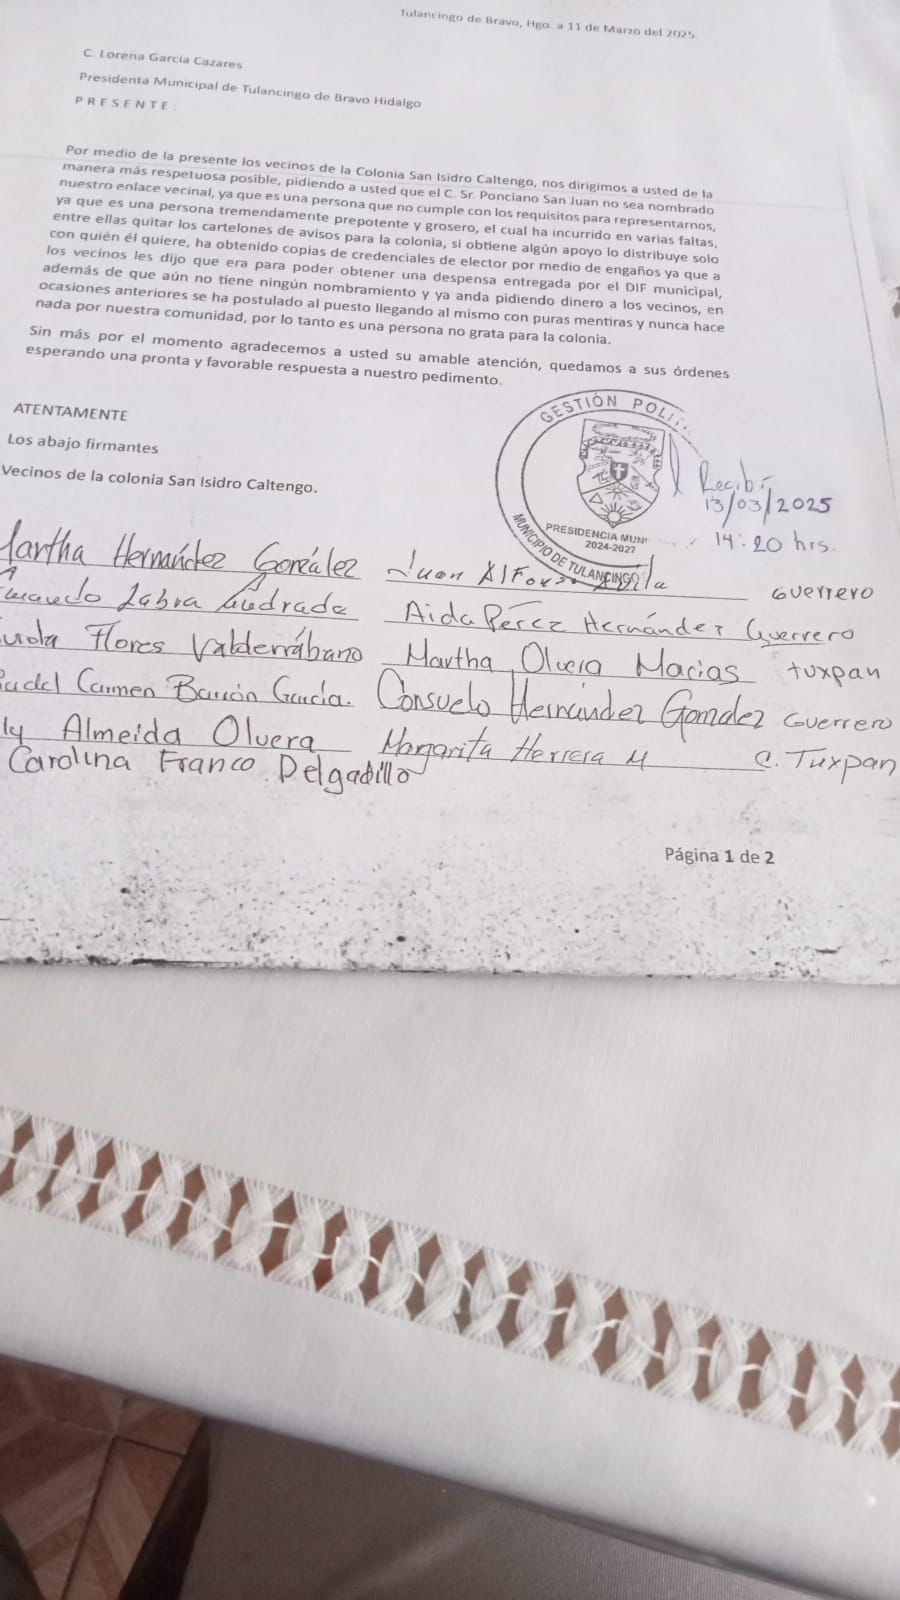 Tulancingo de Bravo, Hgo. a 11 de Marzo del 2025
C. Lorena García Cazares
Presidenta Municipal de Tulancingo de Bravo Hidalgo
P R E S E N T E :
Por medio de la presente los vecinos de la Colonia San Isidro Caltengo, nos dirigimos a usted de la
manera más respetuosa posible, pidiendo a usted que el C. Sr. Ponciano San Juan no sea nombrado
nuestro enlace vecinal, ya que es una persona que no cumple con los requisitos para representarnos,
ya que es una persona tremendamente prepotente y grosero, el cual ha incurrido en varias faltas,
entre ellas quitar los cartelones de avisos para la colonia, si obtiene algún apoyo lo distribuye solo
con quién él quiere, ha obtenido copias de credenciales de elector por medio de engaños ya que a
los vecinos les dijo que era para poder obtener una despensa entregada por el DIF municipal,
además de que aún no tiene ningún nombramiento y ya anda pidiendo dinero a los vecinos, en
ocasiones anteriores se ha postulado al puesto llegando al mismo con puras mentiras y nunca hace
nada por nuestra comunidad, por lo tanto es una persona no grata para la colonia.
Sin más por el momento agradecemos a usted su amable atención, quedamos a sus órdenes
esperando una pronta y favorable respuesta a nuestro pedimento.
ATENTAMENTE
Los abajo firmantes
Vecinos de la colonia San Isidro Caltengo.
GESTIÓN POLI
PRESIDENCIA MUN
2024-2027
MUNICIPIO DE TULANCINGO
Recibí
13/03/2025
14:20 hrs.
Martha Hernández González Juan Guerrero
Labra Andrade Aida Pérez Hernández Guerrero
Flores Valderrábano Martha Olvera Macias tuxpan
Carmen Barrón García. Consuelo Hernández González Guerrero
ly Almeida Olvera Margarita Herrera M C. Tuxpan
Carolina Franco Delgadillo
Página 1 de 2